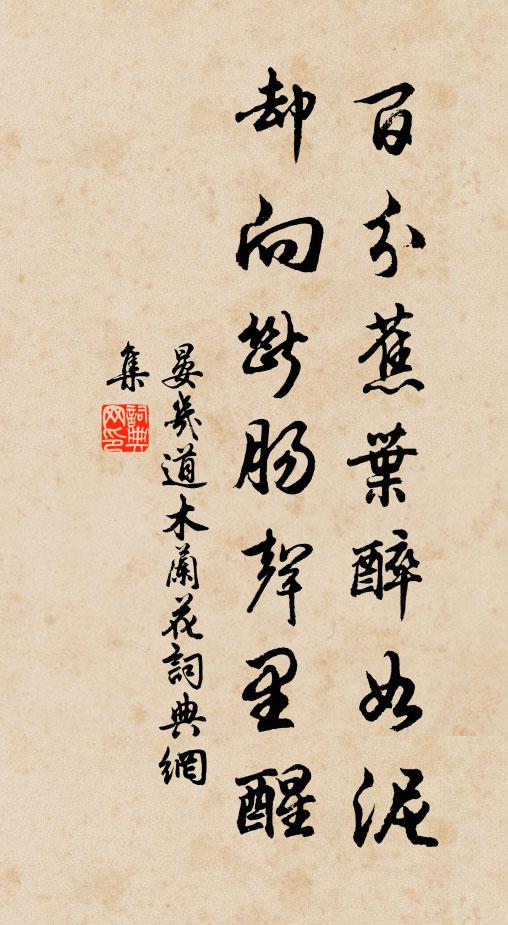 百分蕉葉醉如泥
却向斷腸聲里醒
晏幾道木蘭花詞典網
集
詞典网印